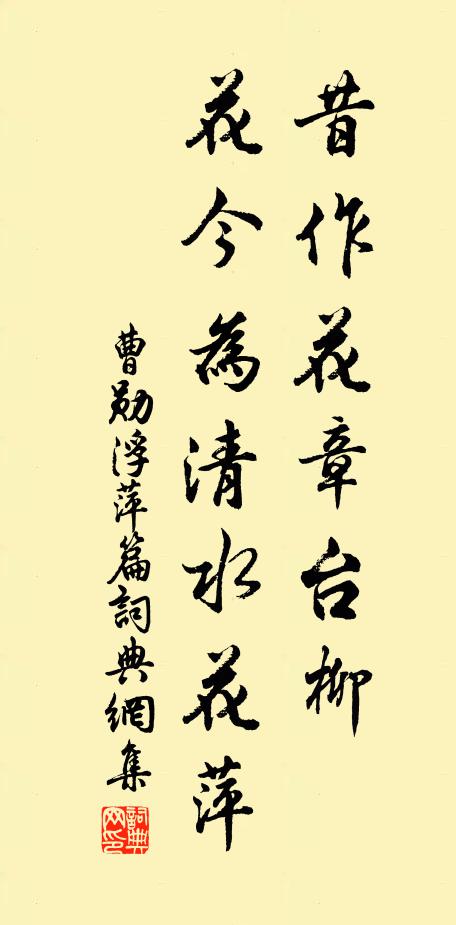 昔作花章台柳
花今為清水花萍
曹勛浮萍篇詞典網集
詞典網印